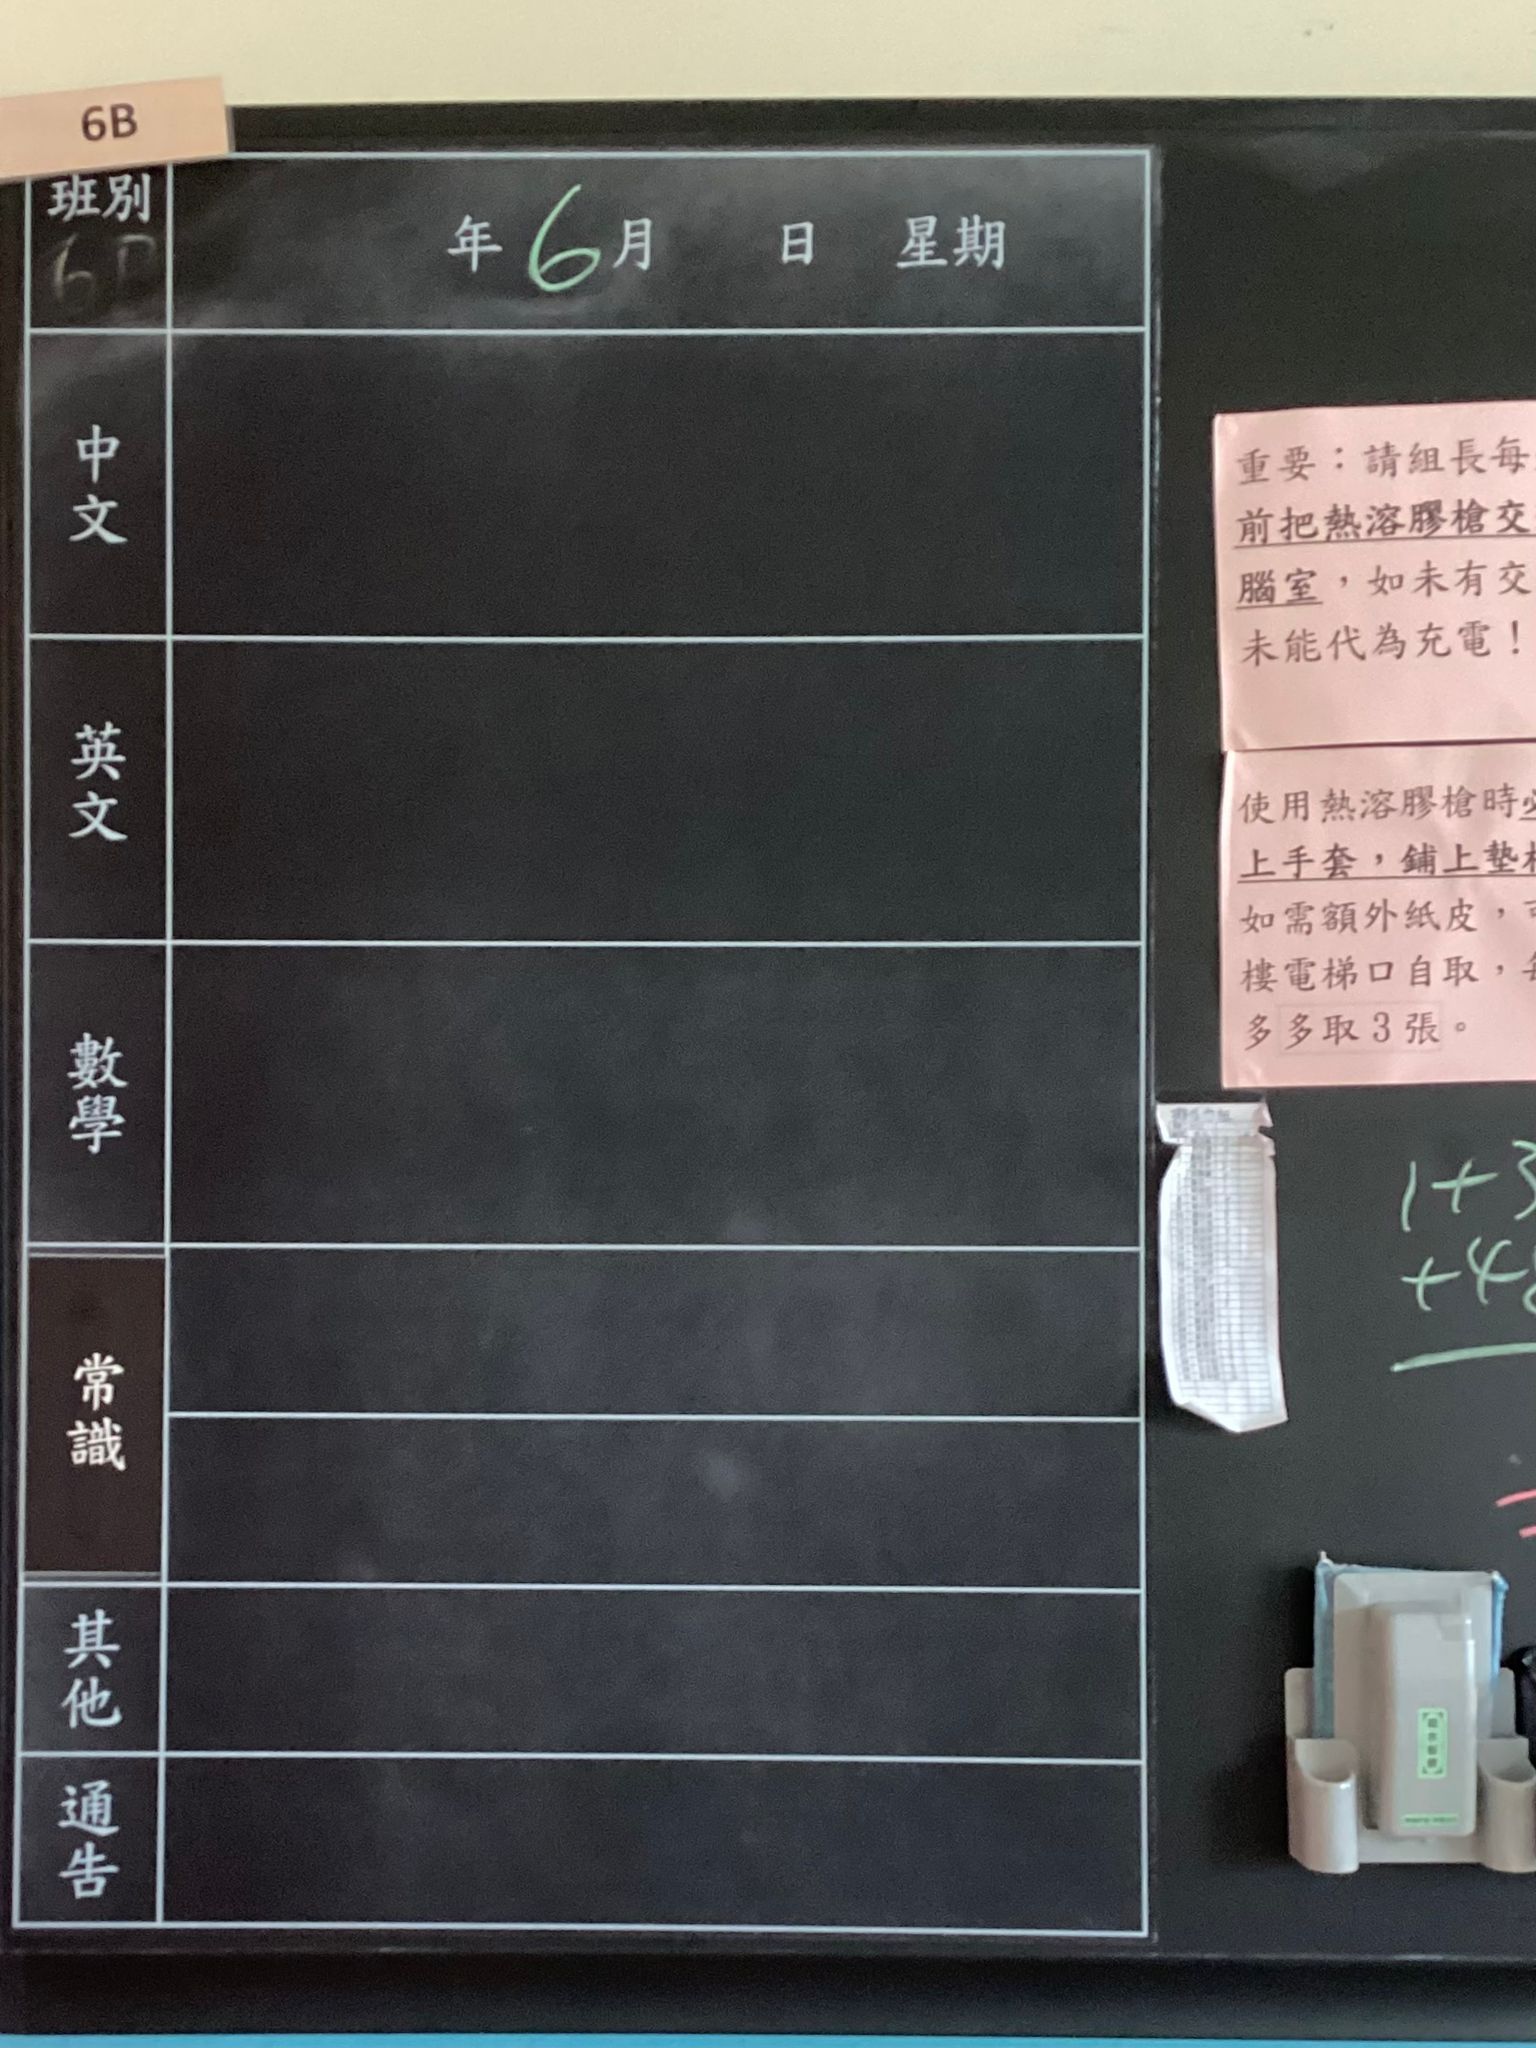 6B
班別
年 6 月 日 星期
中文
英文
數學
常識
其他
通告
重要：請組長每
前把熱溶膠槍交
腦室，如未有交
未能代為充電！
使用熱溶膠槍時
上手套，鋪上墊
如需額外紙皮，
樓電梯口自取，
多多取3張。
1+3
+4